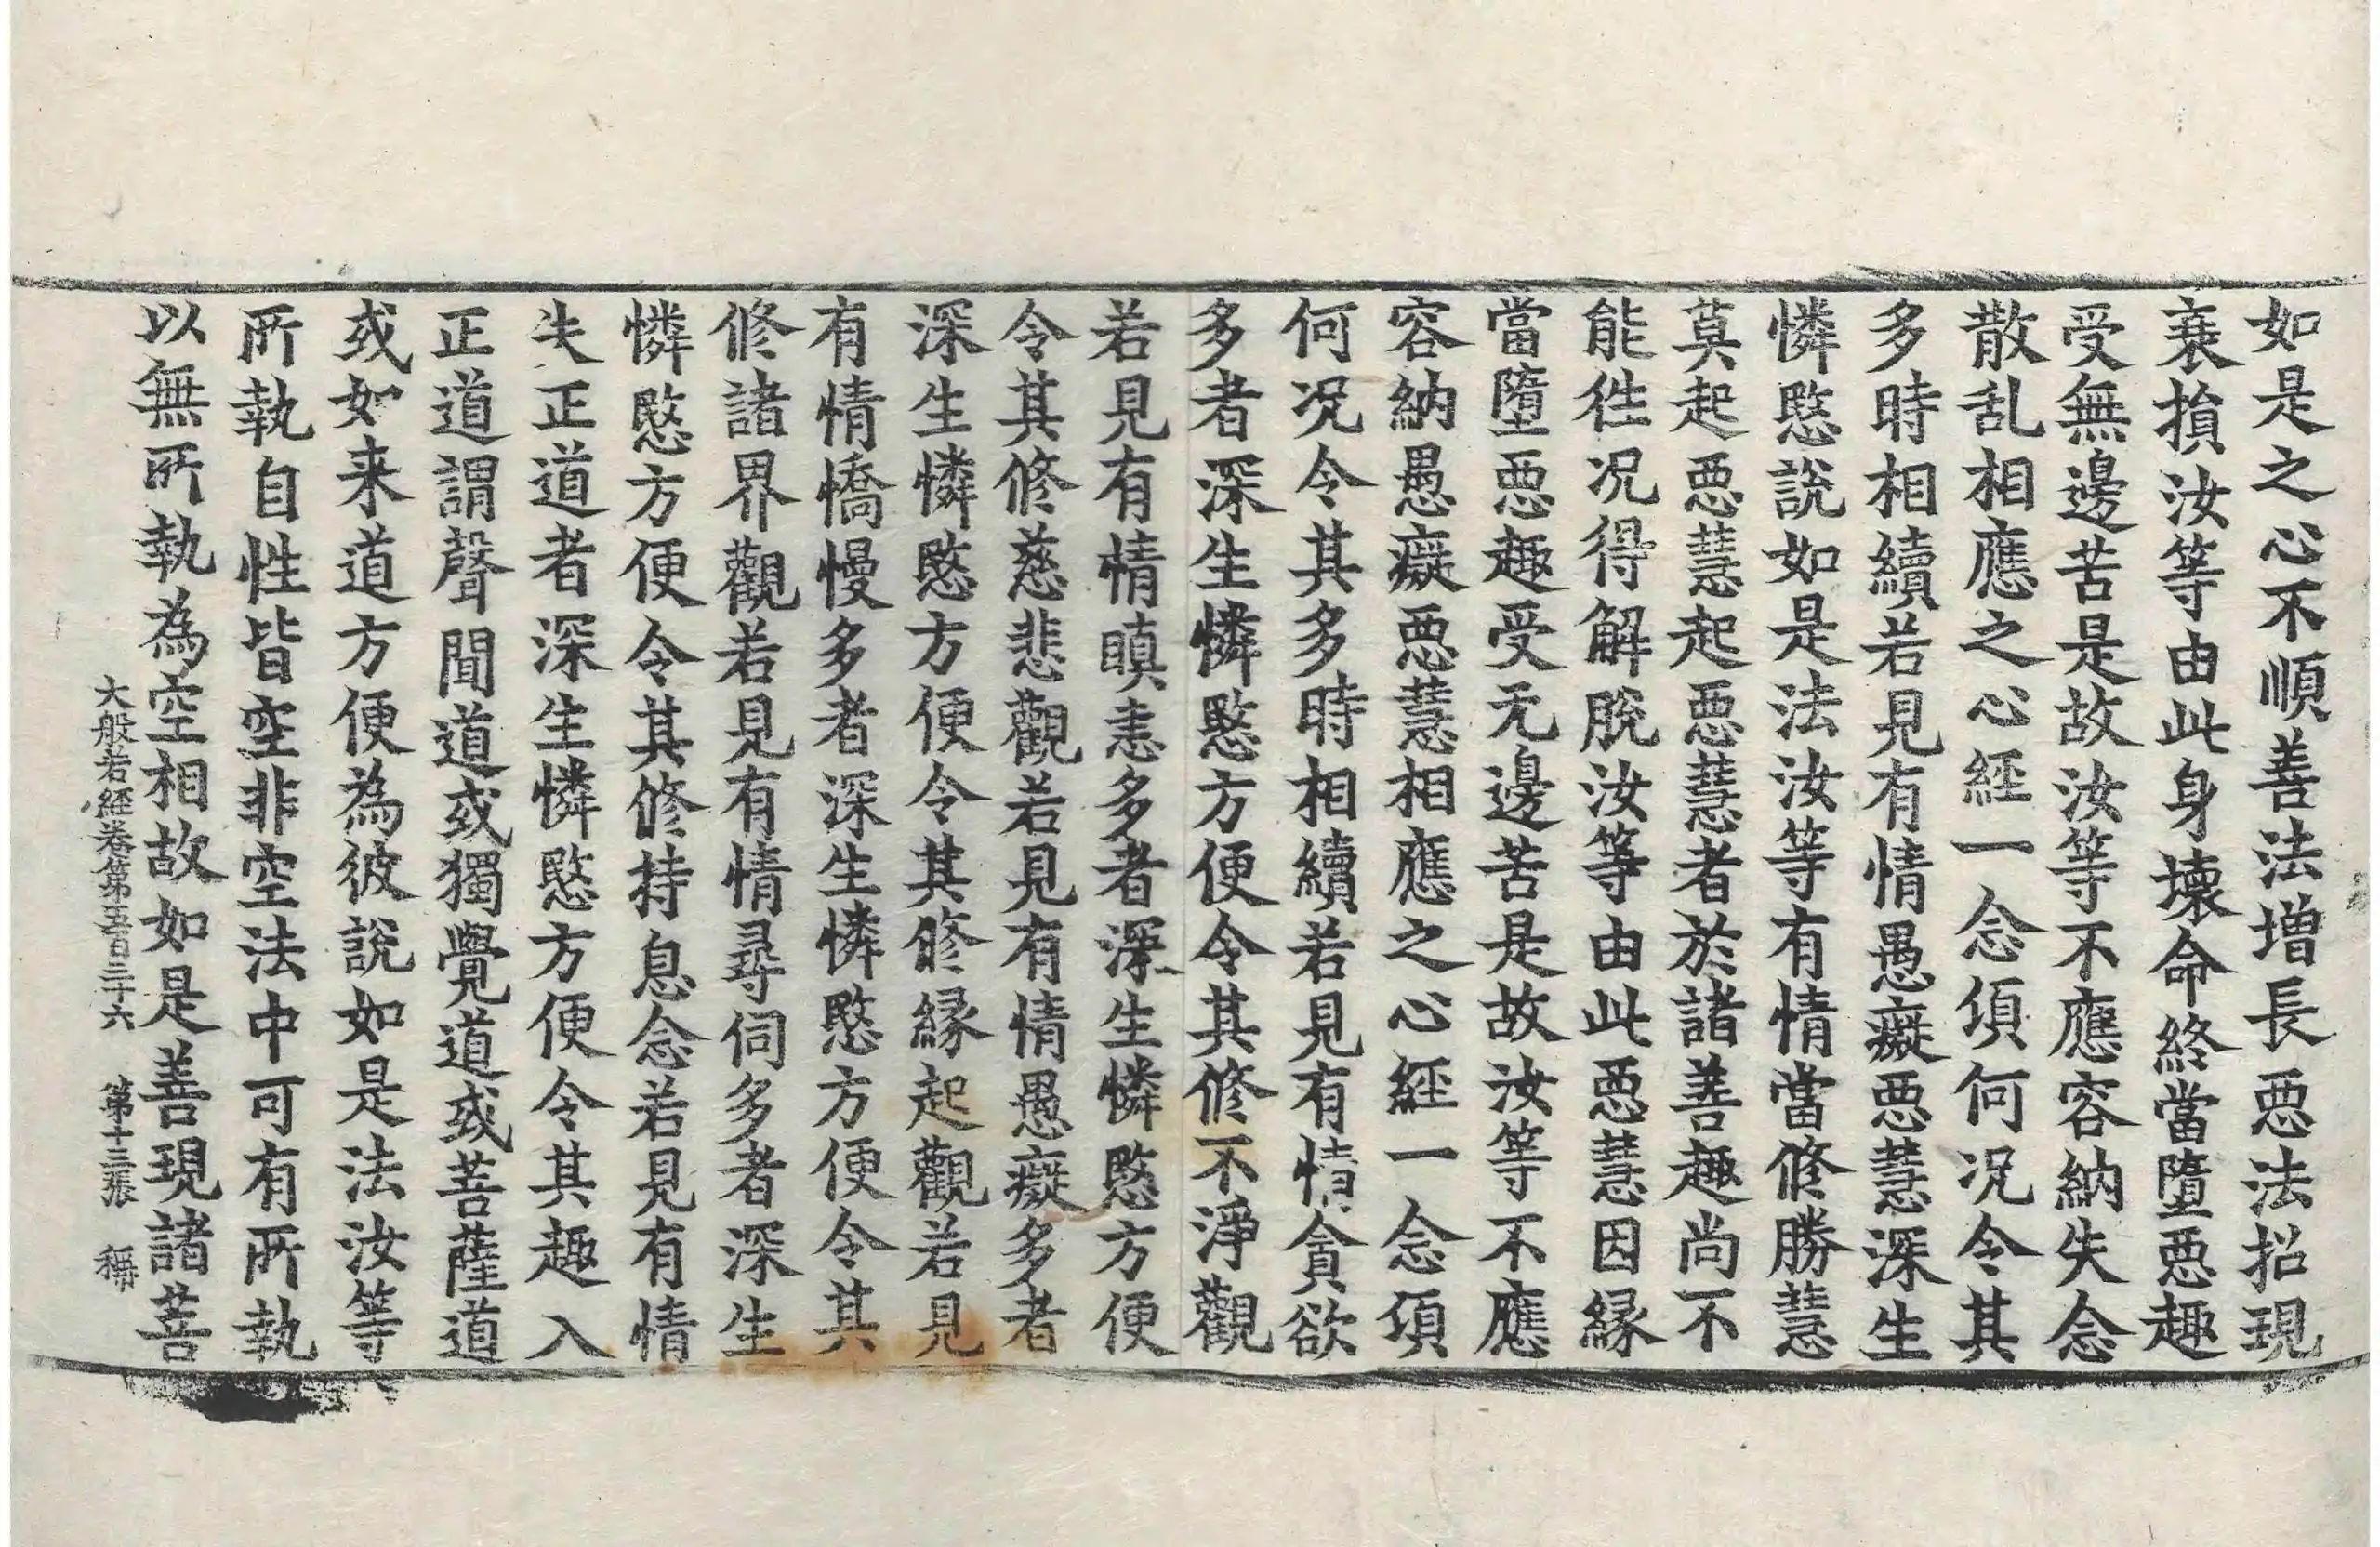 如是之心不順善法增長惡法招現
衰損汝等由此身壞命終當墮惡趣
受無邊苦是故汝等不應容納失念
散乱相應之心經一念頃何况令其
多時相續若見有情愚癡惡慧深生
憐愍說如是法汝等有情當修勝慧
莫起惡慧起惡慧者於諸善趣尚不
能往况得解脫汝等由此惡慧因緣
當墮惡趣受无邊苦是故汝等不應
容納愚癡惡慧相應之心經一念頃
何况令其多時相續若見有情貪欲
多者深生憐愍方便令其修不淨觀
若見有情瞋恚多者深生憐愍方便
令其修慈悲觀若見有情愚癡多者
深生憐愍方便令其修緣起觀若見
有情憍慢多者深生憐愍方便令其
修諸界觀若見有情尋伺多者深生
憐愍方便令其修持息念若見有情
失正道者深生憐愍方便令其趣入
正道謂聲聞道或獨覺道或菩薩道
或如来道方便為彼說如是法汝等
所執自性皆空非空法中可有所執
以無所執為空相故如是善現諸菩
大般若經卷第五百三十六 第十三張 稱